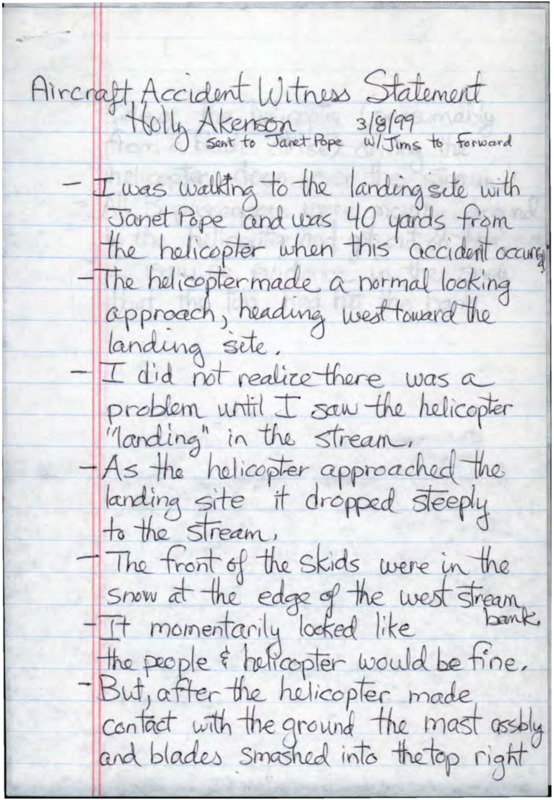 Aircraft Accident Witness Statement
Holly Akenson 3/8/99
Sent to Janet Pope w/ Jims to forward
- I was walking to the landing site with
Janet Pope and was 40 yards from
the helicopter when this accident occurred
- The helicopter made a normal looking
approach, heading west toward the
landing site.
- I did not realize there was a
problem until I saw the helicopter
"landing" in the stream.
- As the helicopter approached the
landing site it dropped steeply
to the stream.
- The front of the skids were in the
snow at the edge of the west stream
bank.
- It momentarily looked like
the people & helicopter would be fine.
- But, after the helicopter made
contact with the ground the mast assbly
and blades smashed into the top right